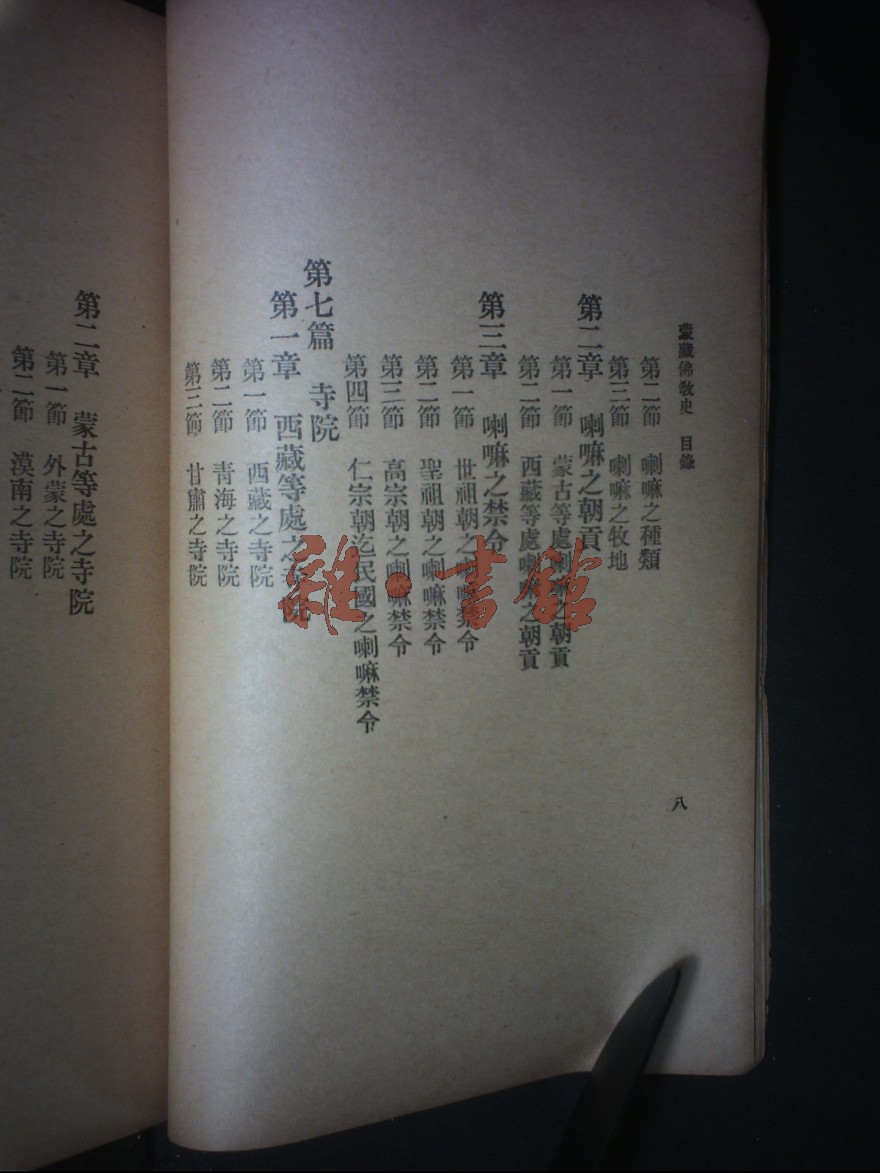 蒙藏佛敎史　目錄
八
第二節　喇嘛之種類
第三節　喇嘛之牧地
第二章　喇嘛之朝貢
第一節　蒙古等處喇嘛之朝貢
第二節　西藏等處喇嘛之朝貢
第三章　喇嘛之禁令
第一節　世祖朝之喇嘛禁令
第二節　聖祖朝之喇嘛禁令
第三節　高宗朝之喇嘛禁令
第四節　仁宗朝迄民國之喇嘛禁令
第七篇　寺院
第一章　西藏等處之寺院
第一節　西藏之寺院
第二節　青海之寺院
第三節　甘肅之寺院
第二章　蒙古等處之寺院
第一節　外蒙之寺院
第二節　漠南之寺院
雜·書館